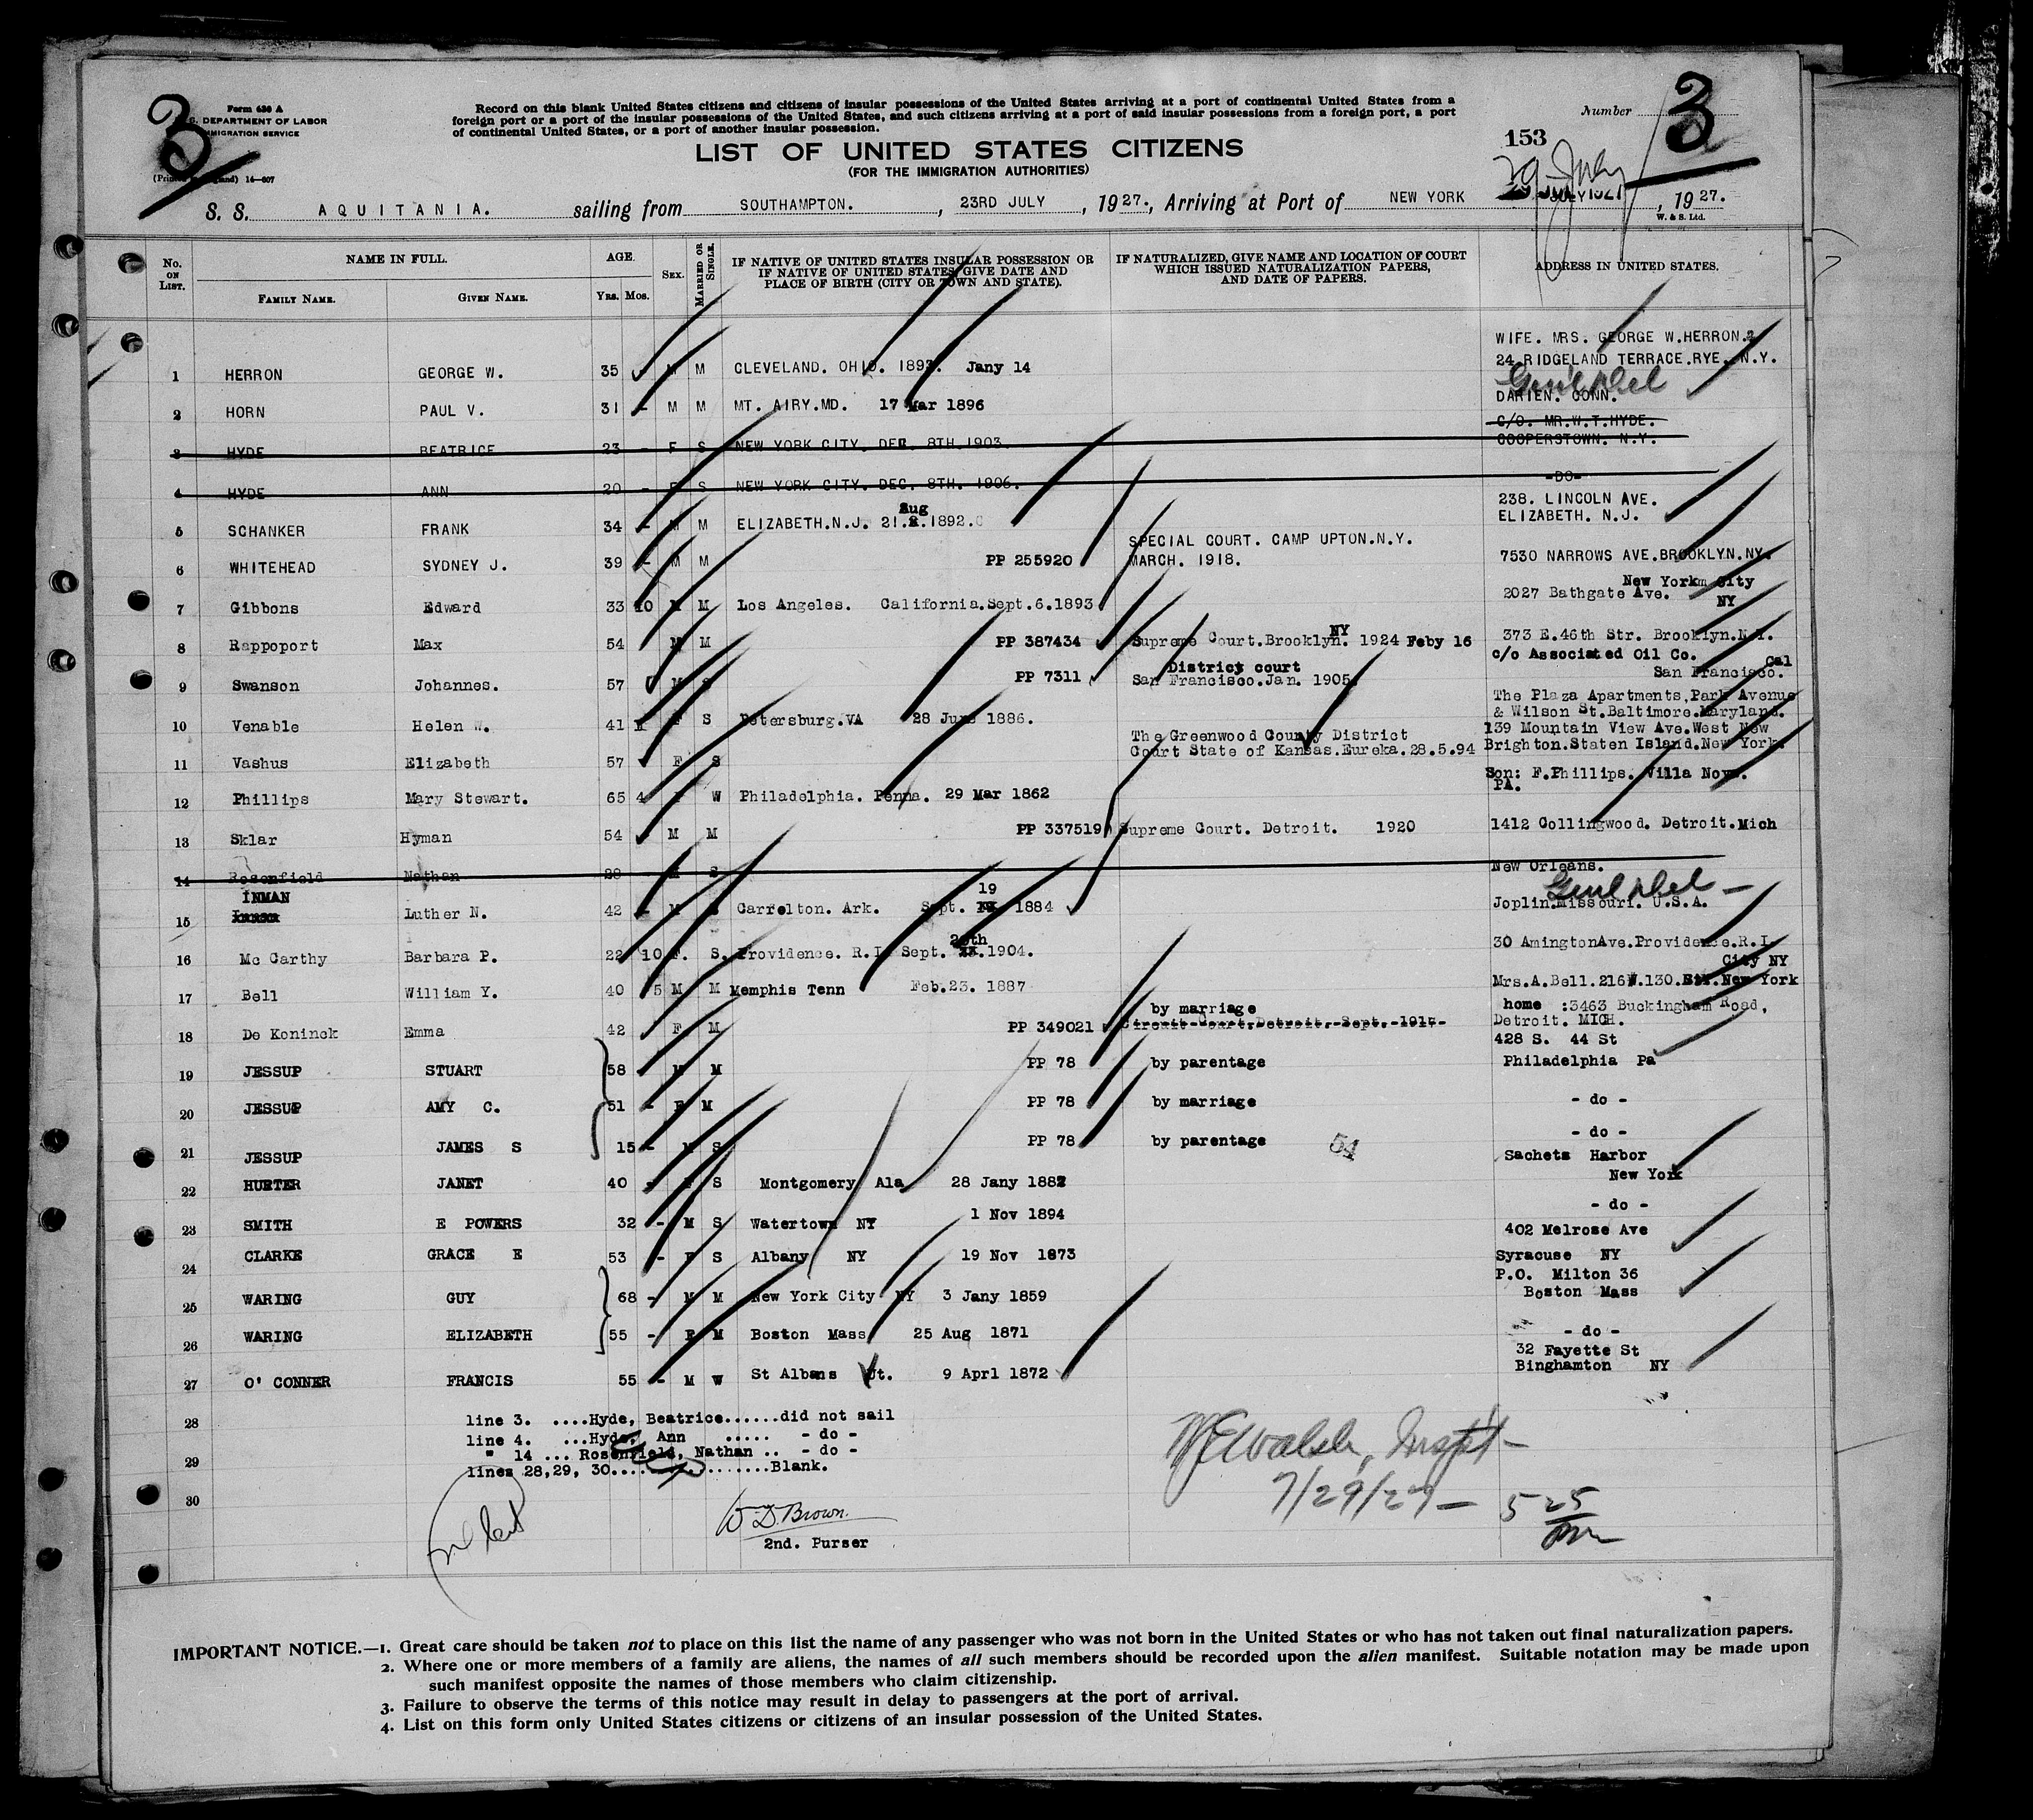 3
Form 630 A
DEPARTMENT OF LABOR
IMMIGRATION SERVICE
14—607
Record on this blank United States citizens and citizens of insular possessions of the United States arriving at a port of continental United States from a
foreign port or a port of the insular possessions of the United States, and such citizens arriving at a port of said insular possessions from a foreign port, a port
of continental United States, or a port of another insular possession.
Number 3
153
LIST OF UNITED STATES CITIZENS
(FOR THE IMMIGRATION AUTHORITIES)
29 July
S. S. AQUITANIA. sailing from SOUTHAMPTON. , 23RD JULY , 1927., Arriving at Port of NEW YORK 29 JULY 1927 , 1927.
W. & S. Ltd.
No. ON LIST. NAME IN FULL. AGE. SEX. MARRIED OR SINGLE. IF NATIVE OF UNITED STATES INSULAR POSSESSION OR IF NATIVE OF UNITED STATES, GIVE DATE AND PLACE OF BIRTH (CITY OR TOWN AND STATE). IF NATURALIZED, GIVE NAME AND LOCATION OF COURT WHICH ISSUED NATURALIZATION PAPERS, AND DATE OF PAPERS. ADDRESS IN UNITED STATES.
FAMILY NAME. GIVEN NAME. YRS. MOS.
WIFE. MRS. GEORGE W.HERRON.
1 HERRON GEORGE W. 35 - M M CLEVELAND. OHIO. 1892. Jany 14 24.RIDGELAND TERRACE.RYE. N.Y.
2 HORN PAUL V. 31 - M M MT. AIRY.MD. 17 Mar 1896 DARIEN. CONN.
C/O. MR.W.T.HYDE.
3 HYDE BEATRICE 23 - F S NEW YORK CITY. DEC. 8TH.1903. COOPERSTOWN. N.Y.
4 HYDE ANN 20 - F S NEW YORK CITY. DEC. 8TH. 1906. -DO-
Aug 238. LINCOLN AVE.
5 SCHANKER FRANK 34 - M M ELIZABETH.N.J. 21.8.1892. ELIZABETH. N.J.
SPECIAL COURT. CAMP UPTON.N.Y.
6 WHITEHEAD SYDNEY J. 39 - M M PP 255920 MARCH. 1918. 7530 NARROWS AVE.BROOKLYN.NY.
New York City
7 Gibbons Edward 33 10 M M Los Angeles. California.Sept.6.1893 2027 Bathgate Ave. NY
NY
8 Rappoport Max 54 M M PP 387434 Supreme Court.Brooklyn. 1924 Feby 16 373 E.46th Str. Brooklyn.N.Y.
District court c/o Associated Oil Co.
9 Swanson Johannes. 57 M S PP 7311 San Francisco.Jan. 1905. San Francisco. Cal
The Plaza Apartments,Park Avenue
10 Venable Helen W. 41 F S Petersburg.VA 28 June 1886. & Wilson St.Baltimore.Maryland.
The Greenwood County District 139 Mountain View Ave.West New
11 Vashus Elizabeth 57 F S Court State of Kansas.Eureka.28.5.94 Brighton.Staten Island.New York.
Son: F.Phillips. Villa Nova.
12 Phillips Mary Stewart. 65 4 F W Philadelphia. Penna. 29 Mar 1862 PA.
13 Sklar Hyman 54 - M M PP 337519 Supreme Court. Detroit. 1920 1412 Collingwood. Detroit.Mich
14 Rosenfield Nathan 28 M S New Orleans.
INMAN 19
15 Luther N. 42 - M S Carrolton. Ark. Sept. 1884 Joplin.Missouri. U.S.A.
16 Mc Carthy Barbara P. 22 10 F. S. Providence. R.I. Sept. .1904. 30 AmingtonAve.Providence.R.I.
City NY
17 Bell William Y. 40 5 M M Memphis Tenn Feb.23. 1887 Mrs.A.Bell.216W.130.Str.New York
by marriage home :3463 Buckingham Road,
18 De Koninck Emma 42 F M PP 349021 Circuit Court.Detroit. Sept. Detroit. MICH.
428 S. 44 St
19 JESSUP STUART 58 - M M PP 78 by parentage Philadelphia Pa
20 JESSUP AMY C. 51 - F M PP 78 by marriage - do -
21 JESSUP JAMES S 15 - M S PP 78 by parentage 54 - do -
Sachets Harbor
22 HUNTER JANET 40 - F S Montgomery Ala 28 Jany 1887 New York
23 SMITH E POWERS 32 - M S Watertown NY 1 Nov 1894 - do -
402 Melrose Ave
24 CLARKE GRACE E 53 - F S Albany NY 19 Nov 1873 Syracuse NY
P.O. Milton 36
25 WARING GUY 68 - M M New York City NY 3 Jany 1859 Boston Mass
26 WARING ELIZABETH 55 - F M Boston Mass 25 Aug 1871 - do -
32 Fayette St
27 O' CONNER FRANCIS 55 - M W St Albans Vt. 9 Aprl 1872 Binghamton NY
28 line 3. ....Hyde, Beatrice......did not sail
line 4. ...Hyde, Ann ..... - do -
" 14 ... Rosenfield, Nathan .. - do -
29 lines 28,29, 30................Blank.
30
W.D. Brown.
2nd. Purser
WEWalsh, Inspt-
7/29/27-
5 25
IMPORTANT NOTICE.—1. Great care should be taken not to place on this list the name of any passenger who was not born in the United States or who has not taken out final naturalization papers.
2. Where one or more members of a family are aliens, the names of all such members should be recorded upon the alien manifest. Suitable notation may be made upon
such manifest opposite the names of those members who claim citizenship.
3. Failure to observe the terms of this notice may result in delay to passengers at the port of arrival.
4. List on this form only United States citizens or citizens of an insular possession of the United States.